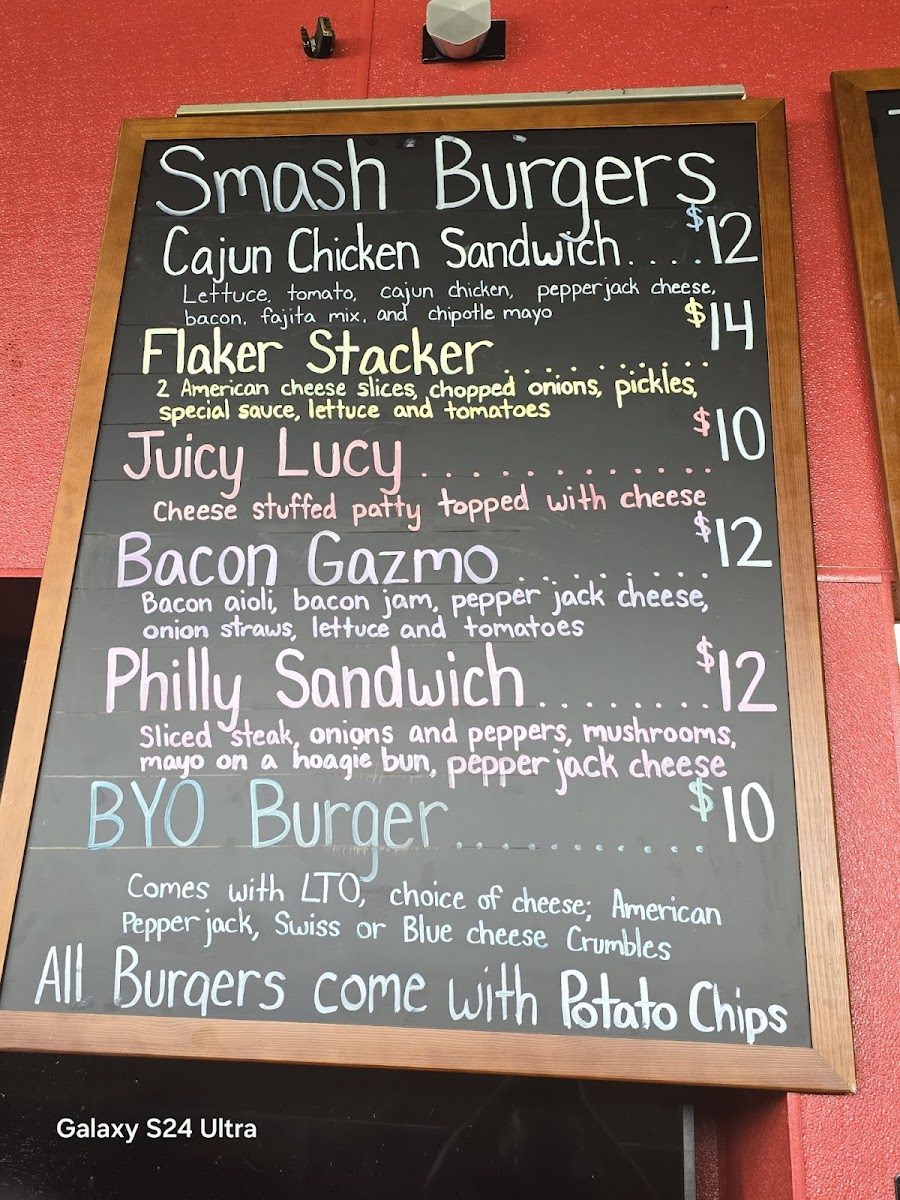 Smash Burgers
Cajun Chicken Sandwich....$12
Lettuce, tomato, cajun chicken, pepper jack cheese,
bacon, fajita mix, and chipotle mayo
Flaker Stacker..........$14
2 American cheese slices, chopped onions, pickles,
special sauce, lettuce and tomatoes
Juicy Lucy.............$10
Cheese stuffed patty topped with cheese
Bacon Gazmo........$12
Bacon aioli, bacon jam, pepper jack cheese,
onion straws, lettuce and tomatoes
Philly Sandwich........$12
Sliced steak, onions and peppers, mushrooms,
mayo on a hoagie bun, pepper jack cheese
BYO Burger...........$10
Comes with LTO, choice of cheese; American
Pepper jack, Swiss or Blue cheese Crumbles
All Burgers come with Potato Chips
Galaxy S24 Ultra